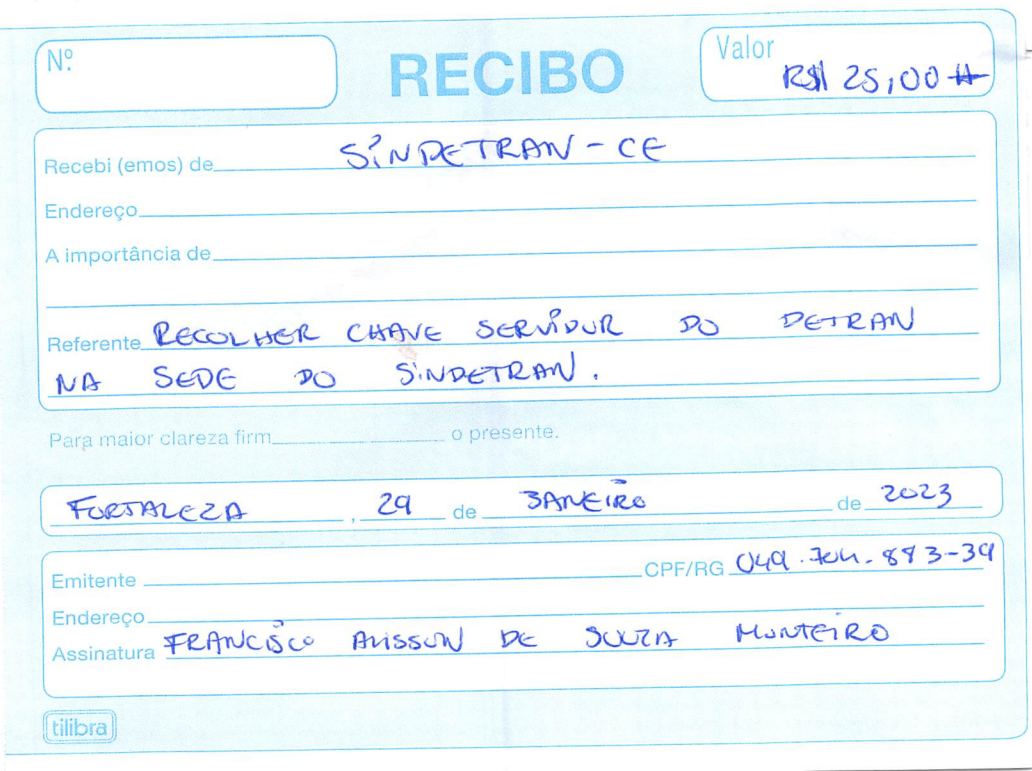 Nº
RECIBO
Valor
R$ 25,00
Recebi (emos) de SINDETRAN-CE
Endereço
A importância de
Referente RECOLHER CHAVE SERVIDOR DO DETRAN
NA SEDE DO SINDETRAN.
Para maior clareza firm o presente.
FORTALEZA, 29 de JANEIRO de 2023
Emitente CPF/RG 049.704.883-39
Endereço
Assinatura FRANCISCO ALISSON DE SOUZA MONTEIRO
tilibra